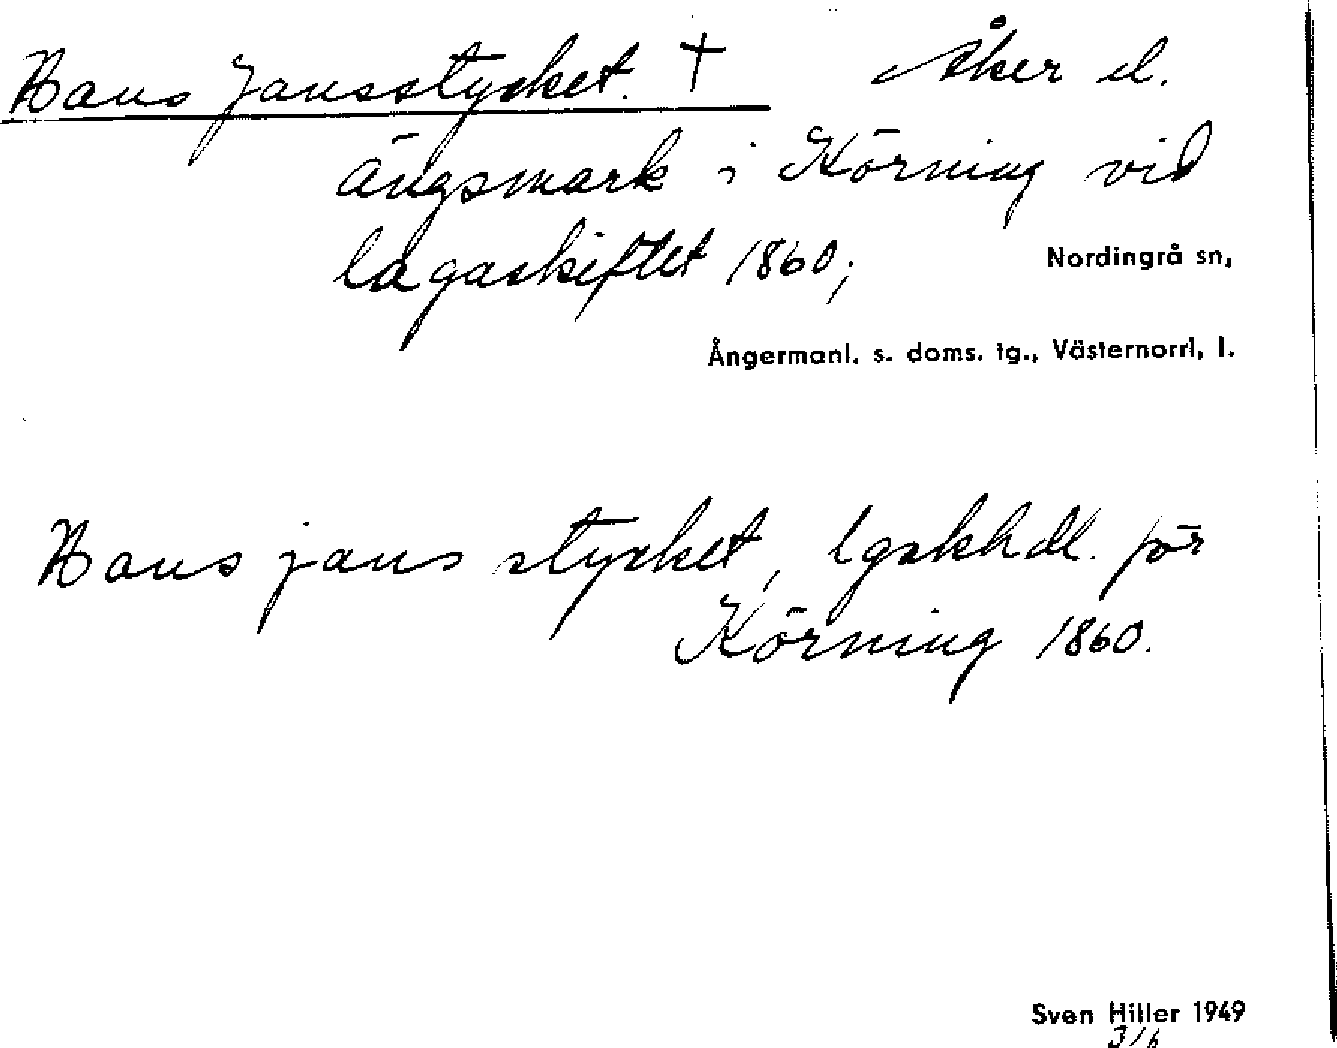 Hans Jansstycket. † Åker el.
ängsmark i Körning vid
lagaskiftet 1860;
Nordingrå sn,
Ångermanl. s. doms. tg., Västernorrl. l.
Hans jans stycket, lgskhdl. för
Körning 1860.
Sven Hiller 1949
3/6